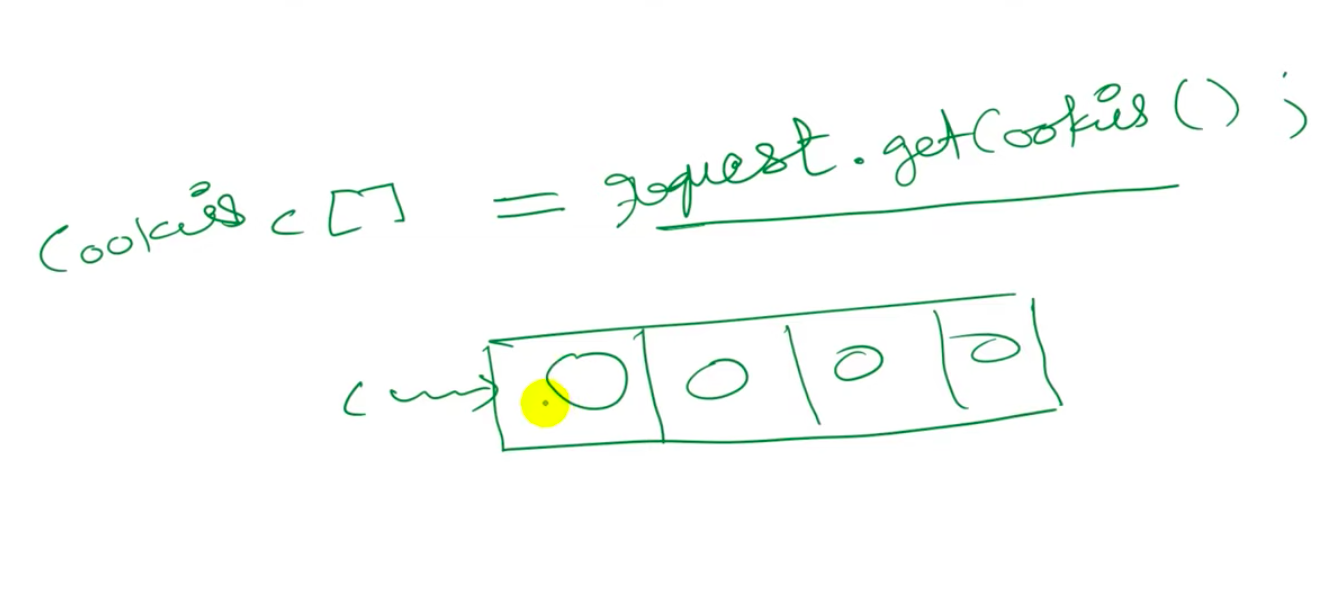 Cookies c [] = request.getCookies();
c